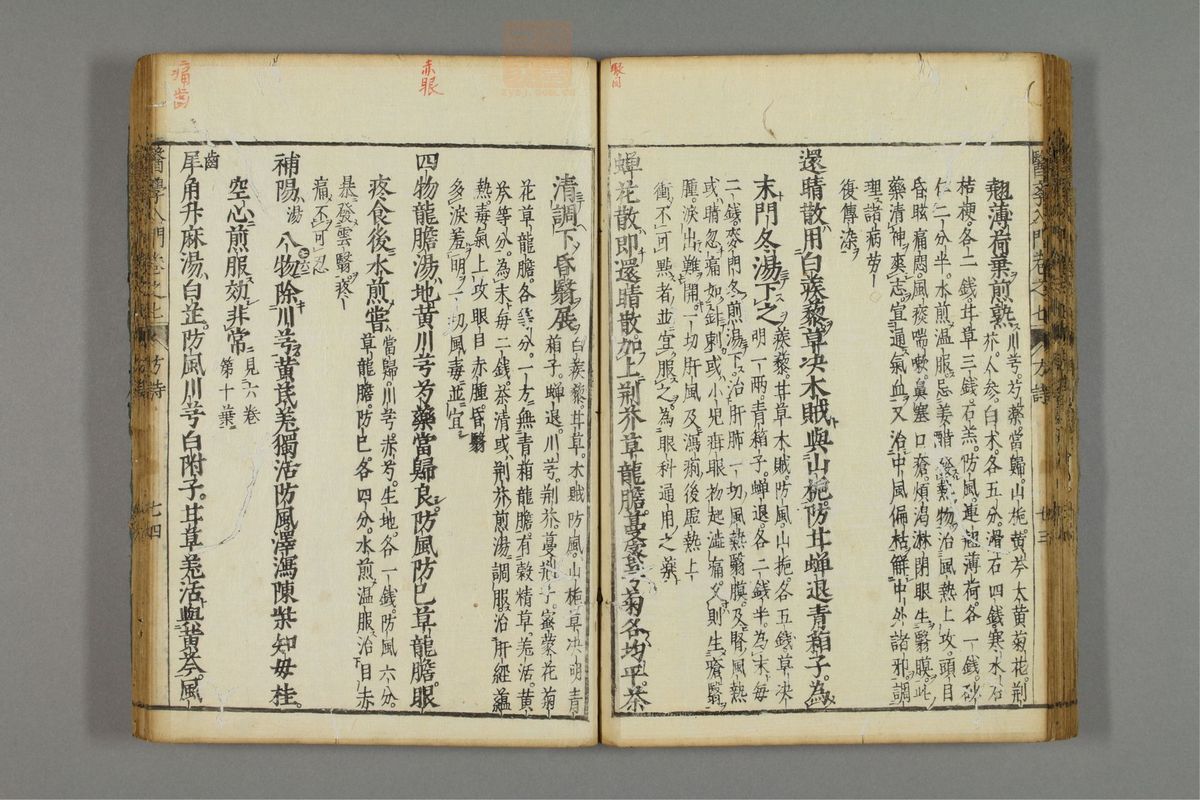 翹薄荷葉煎熟
川芎。芍藥。當歸。山梔。黃芩。大黃。菊花。荆
芥。人參。白朮。各五分。滑石四錢。寒水石
桔梗。各二錢。甘草三錢。石羔。防風。連翹。薄荷。各一錢。砂
仁二分半。水煎溫服。忌姜醋發熱物。治風熱上攻。頭目
昏眩痛悶。風痰喘嗽。鼻塞口瘡。煩渴淋閉。眼生翳膜。此
藥清神爽志。宜通氣血。又治中風偏枯。解中外諸邪。調
理諸病勞
復傳染。
還睛散用白蒺藜草决木賊與山梔防甘蟬退青箱子。為
末門冬湯下之
蒺藜。甘草。木賊。防風。山梔。各五錢。草决
明一兩。青箱子。蟬退。各二錢半。為末。每
二錢。麥門冬煎湯下。治肝肺一切風熱翳膜。及腎風熱
或睛忽痛如針刺。或小兒疳眼。初起澁痛。久則生瘡翳
腫。淚出難開。一切肝風。及瀉痢後虛熱上
衝。不可點者。並宜服之。為眼科通用之藥
蟬花散即還睛散加上荆芥草龍膽。蔓蒙芎菊各均平。茶
清調下昏翳展
白蒺藜。甘草。木賊。防風。山梔。草决明。青
箱子。蟬退。川芎。荆芥。蔓荆子。蜜蒙花。菊
花。草龍膽。各等分。一方無青箱龍膽。有穀精草。羌活。黃
芩等分。為末。每二錢。茶清或荆芥煎湯調服。治肝經蘊
熱毒氣上攻。眼目赤腫昏翳
多淚羞明。一切風毒並宜
四物龍膽湯地黃川芎芍藥當歸良。防風防巳草龍膽。眼
疼食後水煎嘗
當歸。川芎。赤芍。生地。各一錢。防風六分。
草龍膽。防巳。各四分。水煎溫服。治目赤
暴發雲翳疼
痛不可忍
補陽湯八物除川芎黃芪羌獨活防風澤瀉陳柴知母桂。
空心煎服效非常
見六卷
第十葉
齒
犀角升麻湯白芷。防風川芎白附子。甘草羌活與黃芩。風
醫學入門卷之七
方詩
七三
七四
赤眼
痛齒